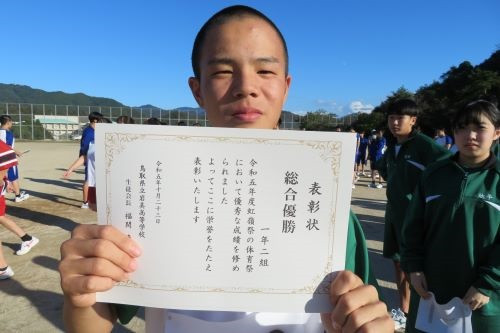 表彰状
総合優勝
一年二組
令和五年度虹嶺祭の体育祭
において優秀な成績を修め
られました
よってここに栄誉をたたえ
表彰いたします
令和五年十月二十三日
鳥取県立岩美高等学校
生徒会長 福間